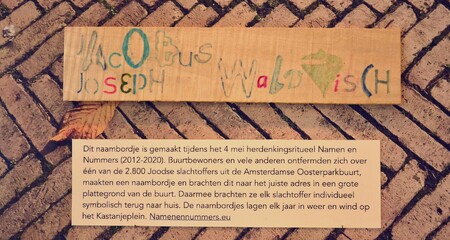 JACOBUS
JOSEPH WALVISCH
Dit naambordje is gemaakt tijdens het 4 mei herdenkingsritueel Namen en
Nummers (2012-2020). Buurtbewoners en vele anderen ontfermden zich over
één van de 2.800 Joodse slachtoffers uit de Amsterdamse Oosterparkbuurt,
maakten een naambordje en brachten dit naar het juiste adres in een grote
plattegrond van de buurt. Daarmee brachten ze elk slachtoffer individueel
symbolisch terug naar huis. De naambordjes lagen elk jaar in weer en wind op
het Kastanjeplein. Namenennummers.eu